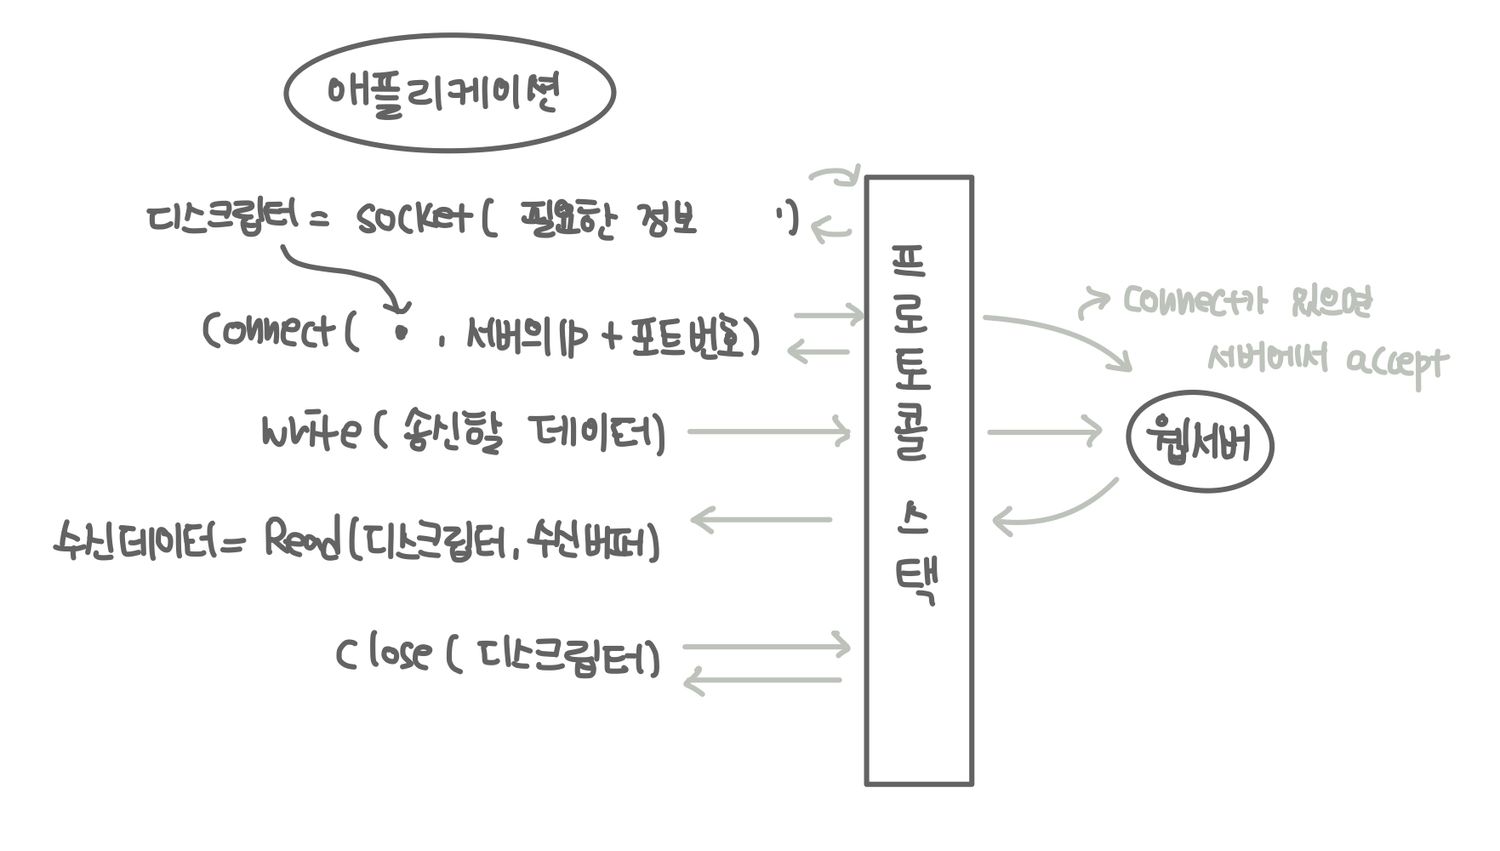 애플리케이션
디스크립터 = socket( 필요한 정보 )
Connect( • , 서버의 IP + 포트번호)
write( 송신할 데이터)
수신데이터 = Read(디스크립터, 수신버퍼)
Close( 디스크립터)
프로토콜 스택
Connect가 있으면
서버에서 accept
웹서버